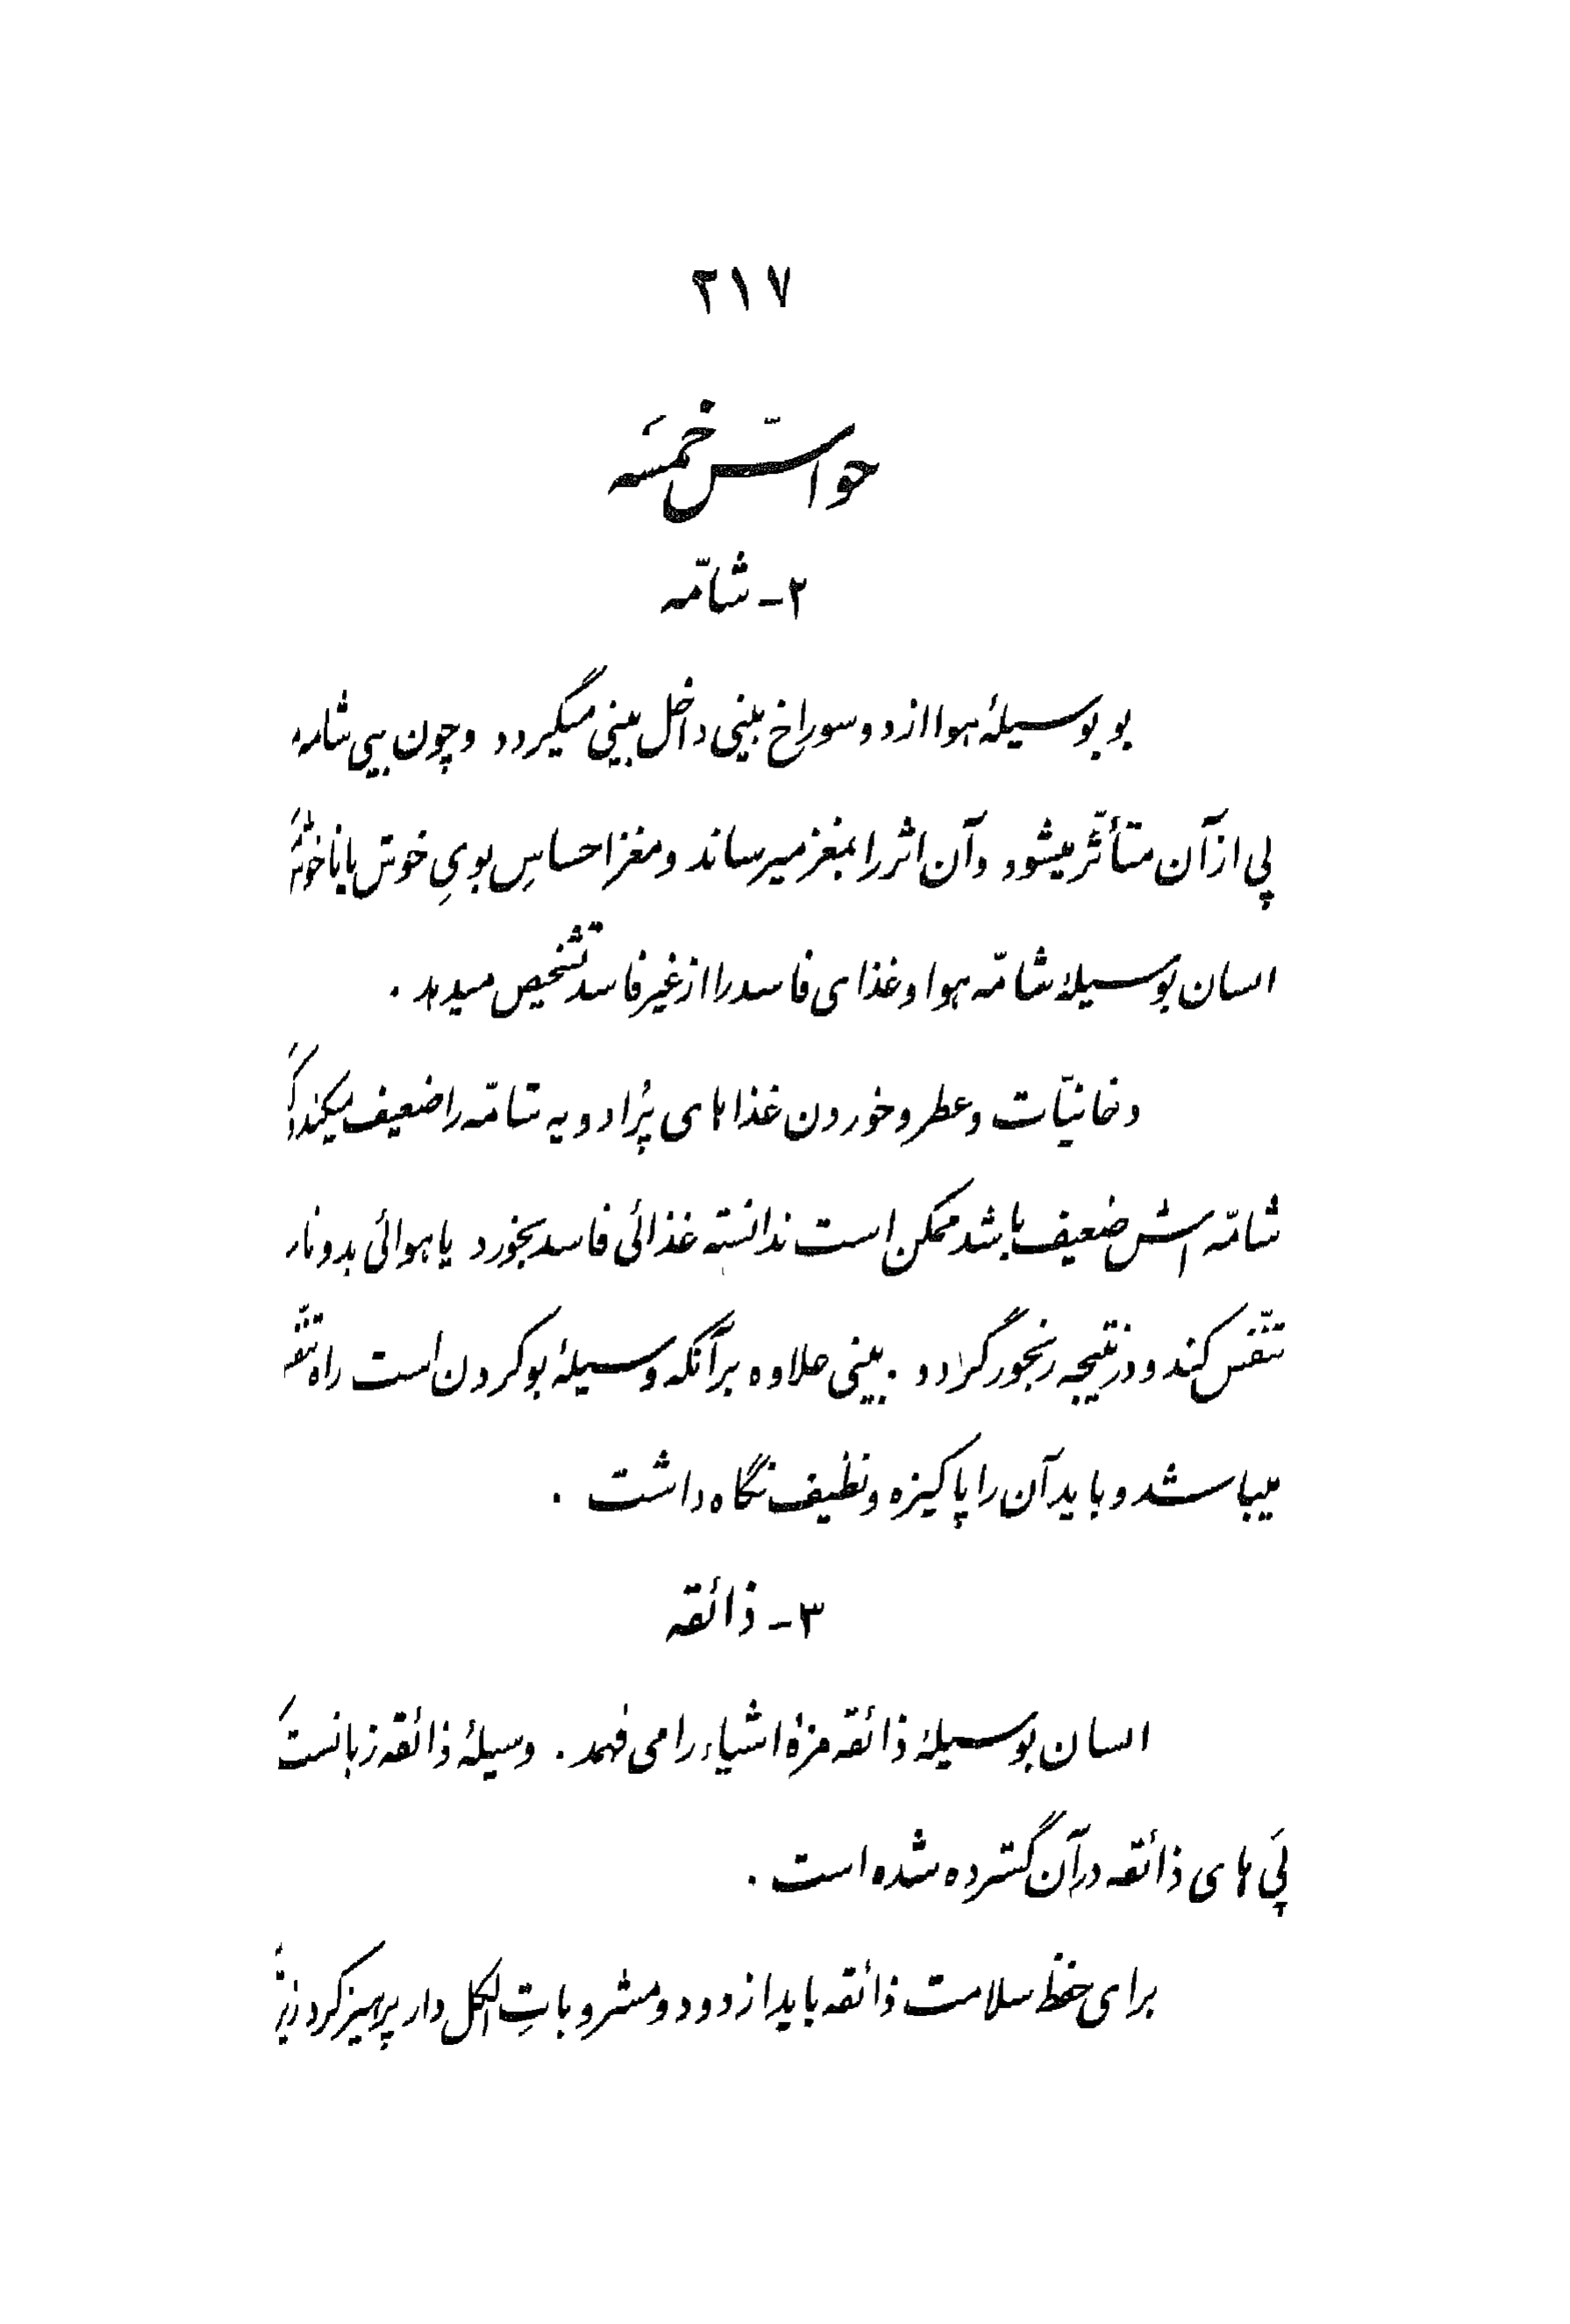 ۲۱۷
حواسّ خمسَه
۲ـ شامّه
بو بوسیلهٔ هوا از دو سوراخ بینی داخل بینی میگردد و چون ببی شامه
پی از آن متأثّر میشود و آن اثر را بمغز میرساند و مغز احساسِ بویِ خوش یا ناخوش
انسان بوسیلهٔ شامّه هوا و غذای فاسد را از غیر فاسد تشخیص میدهد .
دخانیّات و عطر و خوردن غذاهای پُر ادویه شامّه را ضعیف میکند
شامّه اش ضعیف باشد ممکن است ندانسته غذائی فاسد بخورد یا هوائی بد و نا
تنفّس کند و در نتیجه رنجور گردد . بینی علاوه بر آنکه وسیلهٔ بو کردن است راه تنفّ
میباشد و باید آن را پاکیزه و نظیف نگاه داشت .
۳ـ ذائقه
انسان بوسیلهٔ ذائقه مزهٔ اشیاء را می فهمد . وسیلهٔ ذائقه زبانست
پَی های ذائقه در آن گسترده شده است .
برای حفظ سلامت ذائقه باید از دود و مشروباتِ الکل دار پرهیز کرد